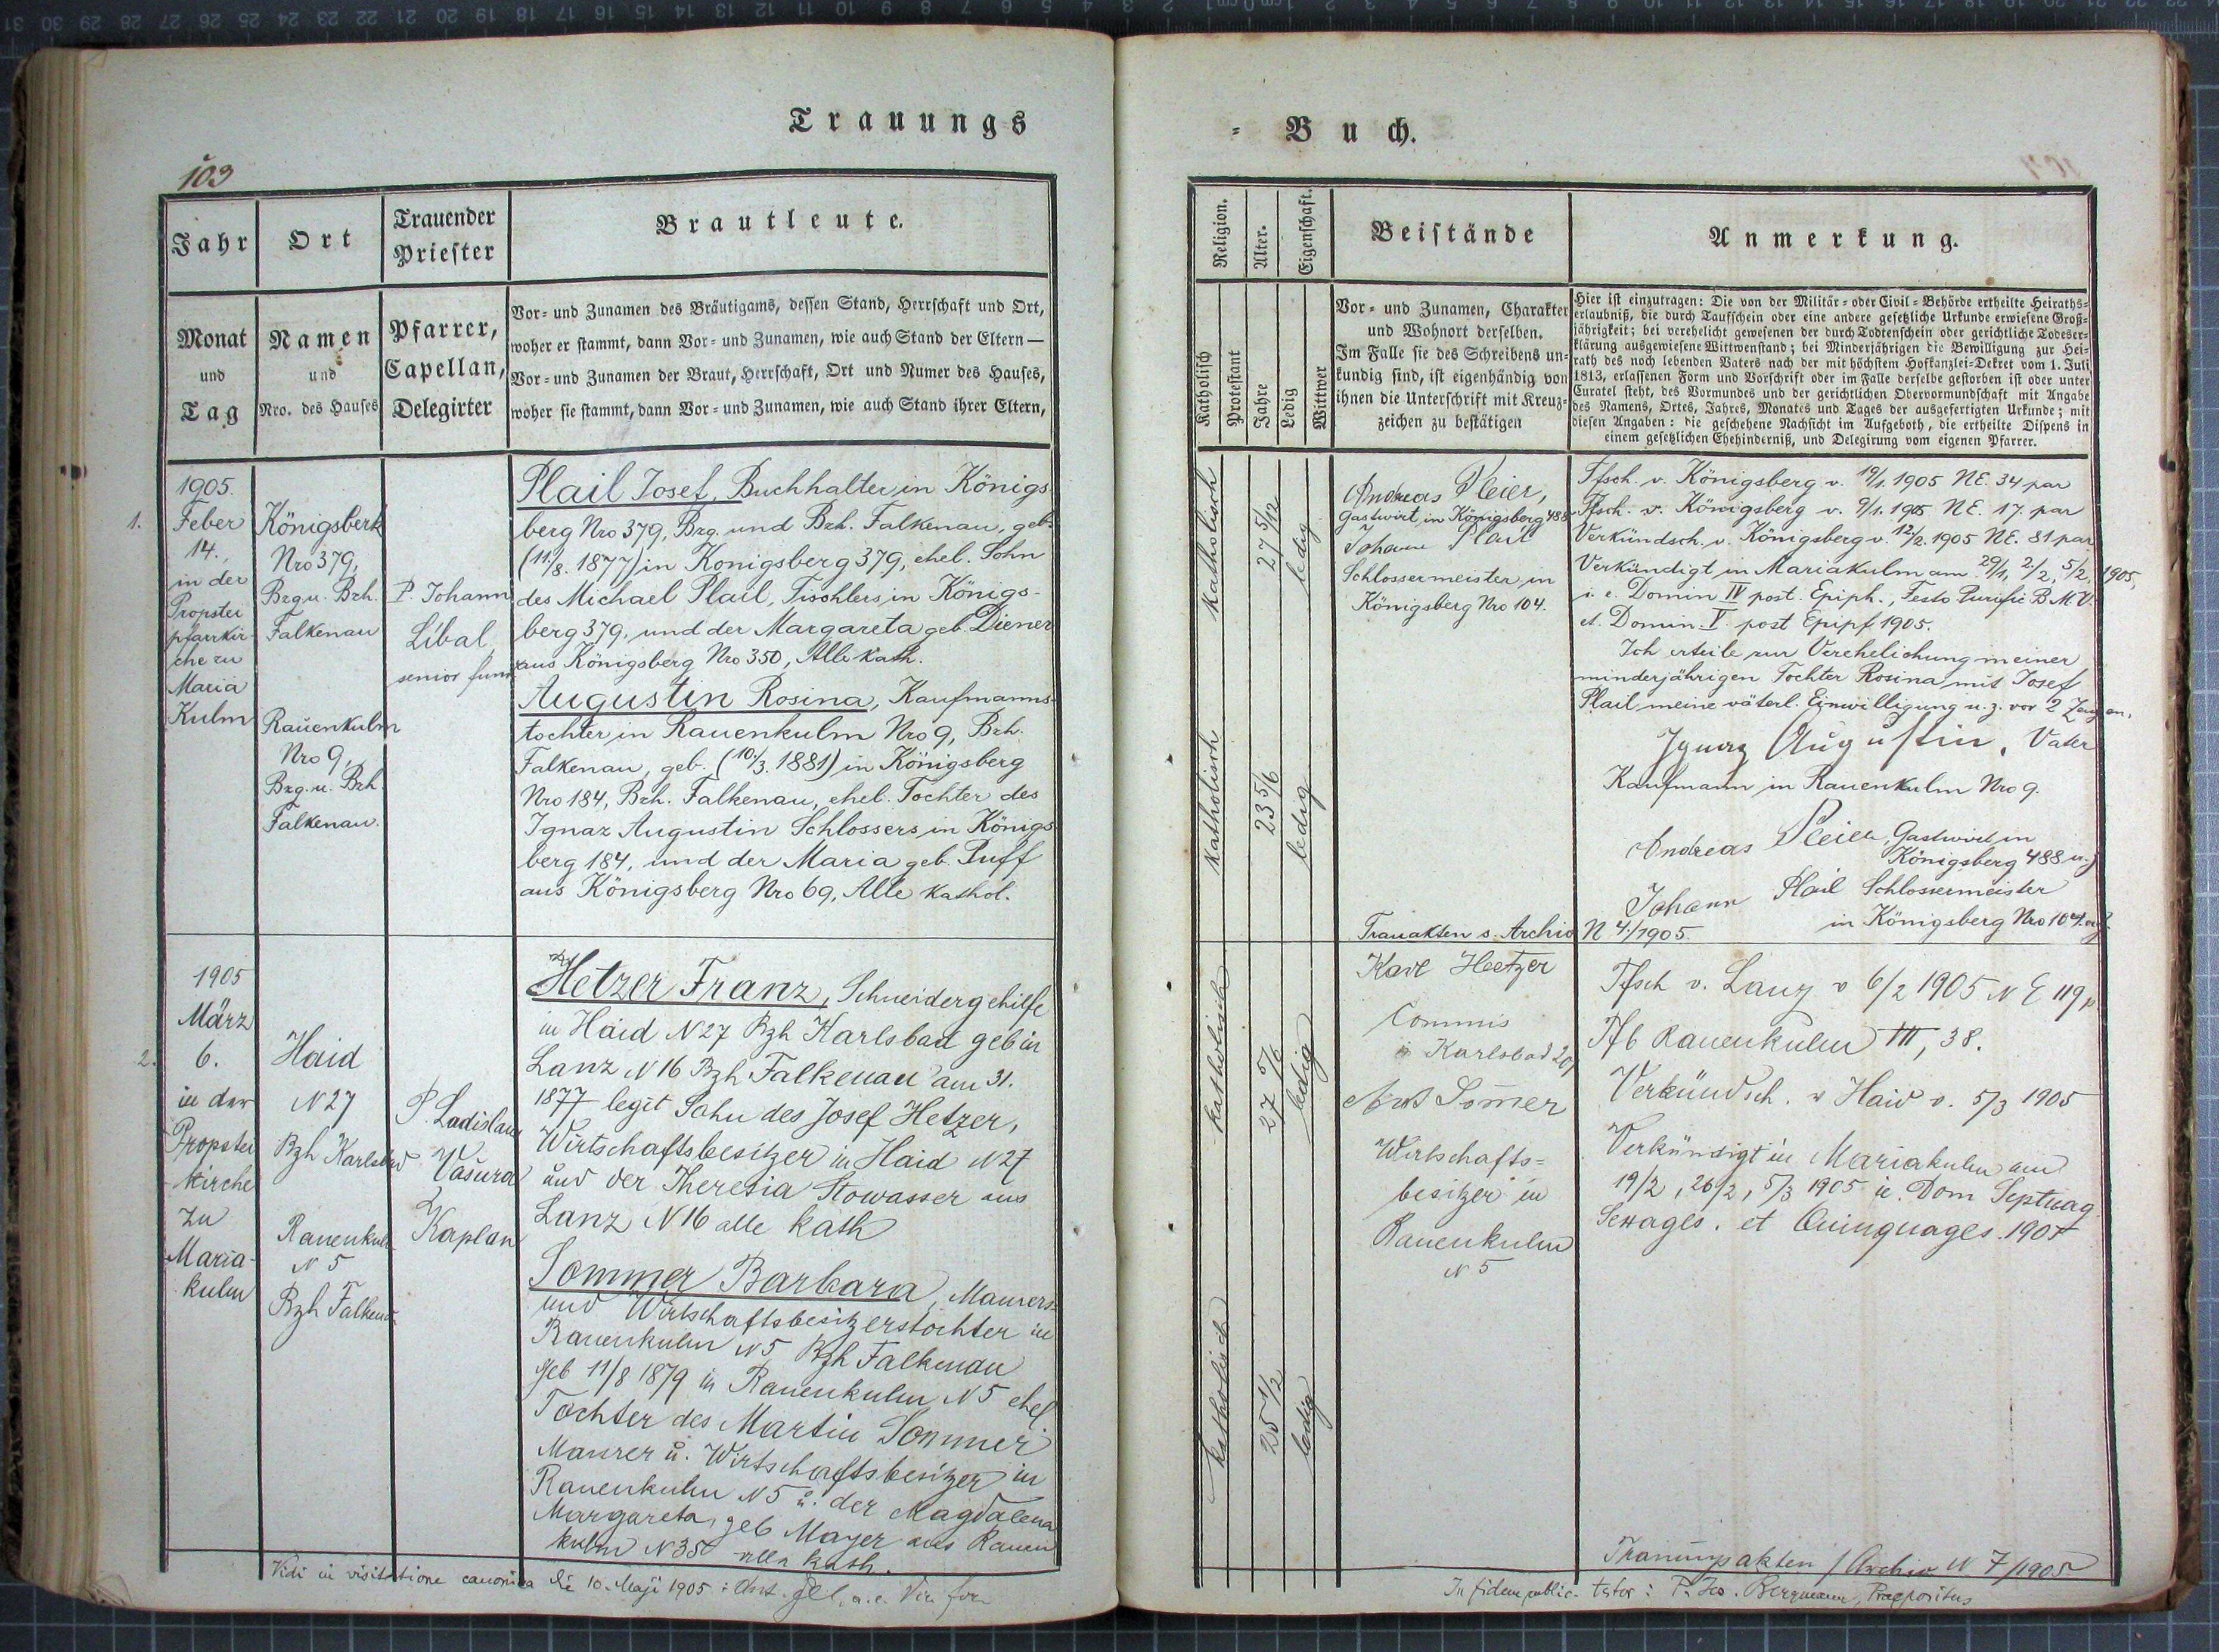 Trauungs
103
Jahr
Ort
Trauender
Priester
Brautleute.
Monat
und
Tag
Namen
und
Nro. des Hauses
Pfarrer,
Capellan,
Delegirter
Vor- und Zunamen des Bräutigams, dessen Stand, Herrschaft und Ort,
woher er stammt, dann Vor- und Zunamen, wie auch Stand der Eltern —
Vor- und Zunamen der Braut, Herrschaft, Ort und Numer des Hauses,
woher sie stammt, dann Vor- und Zunamen, wie auch Stand ihrer Eltern,
1.
1905.
Feber
14.,
in der
Propstei
pfarrkir-
che zu
Maria
Kulm
Königsberk
Nro 379,
Bzg u. Bzh.
Falkenau
Rauenkulm
Nro 9,
Bzg. u. Bzh.
Falkenau.
P. Johann
Líbal,
senior
Plail Josef, Buchhalter, in Königs
berg Nro 379, Bzg. und Bzh. Falkenau, geb.
(11./8. 1877) in Königsberg 379, ehel. Sohn
des Michael Plail, Tischlers, in Königs-
berg 379, und der Margareta geb. Diener
aus Königsberg Nro 350, Alle kath.
Augustin Rosina, Kaufmanns-
tochter in Rauenkulm Nro 9, Bzh.
Falkenau, geb. (10./3. 1881) in Königsberg
Nro 184, Bzh. Falkenau, ehel. Tochter des
Ignaz Augustin Schlossers, in Königs
berg 184, und der Maria geb. Puff
aus Königsberg Nro 69, Alle kathol.
2.
1905
März
6.
in der
Propstei
kirche
zu
Maria-
kulm
Haid
N 27
Bzh Karlsbad
Rauenkulm
N 5
Bzh Falkenau
P. Ladislaus
Vašura
Kaplan
Hetzer Franz, Schneidergehilfe
in Haid N 27 Bzh Karlsbad geb in
Lanz N 16 Bzh Falkenau am 31.
1877 legit Sohn des Josef Hetzer,
Wirtschaftsbesitzer in Haid N 27
und der Theresia Stowasser aus
Lanz N 16 alle kath
Sommer Barbara, Maurers-
und Wirtschaftsbesitzerstochter in
Rauenkulm N 5 Bzh Falkenau
geb 11/8 1879 in Rauenkulm N 5 ehel
Tochter des Martin Sommer
Maurer u. Wirtschaftsbesitzer in
Rauenkulm N 5 u. der Magdalena
Margareta, geb Mayer aus Rauen
kulm N 35 alle kath.
Vidi in visitatione canonica die 10. Maji 1905 :
= Buch.
Religion.
Alter.
Eigenschaft.
Beistände
Anmerkung.
Katholisch
Protestant
Jahre
Ledig
Wittwer
Vor- und Zunamen, Charakter
und Wohnort derselben.
Im Falle sie des Schreibens un-
kundig sind, ist eigenhändig von
ihnen die Unterschrift mit Kreuz-
zeichen zu bestätigen
Hier ist einzutragen: Die von der Militär- oder Civil-Behörde ertheilte Heiraths-
erlaubniß, die durch Taufschein oder eine andere gesetzliche Urkunde erwiesene Groß-
jährigkeit; bei verehelicht gewesenen der durch Todtenschein oder gerichtliche Todeser-
klärung ausgewiesene Wittwenstand; bei Minderjährigen die Bewilligung zur Hei-
rath des noch lebenden Vaters nach der mit höchstem Hofkanzlei-Dekret vom 1. Juli
1813, erlassenen Form und Vorschrift oder im Falle derselbe gestorben ist oder unter
Curatel steht, des Vormundes und der gerichtlichen Obervormundschaft mit Angabe
des Namens, Ortes, Jahres, Monates und Tages der ausgefertigten Urkunde; mit
diesen Angaben: die geschehene Nachsicht im Aufgeboth, die ertheilte Dispens in
einem gesetzlichen Ehehinderniß, und Delegirung vom eigenen Pfarrer.
katholisch
27 5/12
ledig
katholisch
23 5/6
ledig
Andreas Pleier,
Gastwirt, in Königsberg 488
Johann Plail
Schlossermeister in
Königsberg Nro 104.
Tfsch. v. Königsberg v. 19/1. 1905 NE. 34 par
Tfsch. v. Königsberg v. 9/1. 1905 NE. 17. par
Verkündsch. v. Königsberg v. 12./2. 1905 NE. 81 par
Verkündigt in Mariakulm am 29/1, 2/2, 5/2, 1905,
i. e. Domin IV post. Epiph., Festo Purific B.M.V.
et. Domin. V. post Epipf 1905.
Ich erteile zur Verehelichung meiner
minderjährigen Tochter Rosina mit Josef
Plail meine väterl. Einwilligung u. z. vor 2 Zeugen.
Ignaz Augustin, Vater
Kaufmann in Rauenkulm Nro 9.
Andreas Pleier, Gastwirt in
Königsberg 488
Johann Plail Schlossermeister
in Königsberg Nro 104.
Trauakten s. Archiv N 4./1905.
katholisch
27 5/6
ledig
katholisch
25 1/2
ledig
Karl Hetzer
Commis
in Karlsbad
Sommer
Wirtschafts=
besitzer in
Rauenkulm
N 5
Tfsch v. Lanz v 6/2 1905 N E 119 p
Tfb Rauenkulm III, 38.
Verkündsch. v Haid v. 5/3 1905
Verkündigt in Mariakulm am
19/2, 26/2, 5/3 1905 ie. Dom Septuag.
Sexages. et Quinquages. 1905
Trauungsakten / Archiv N 7/1905
In fidem public. testor: P. Jos. Bergmann, Praepositus